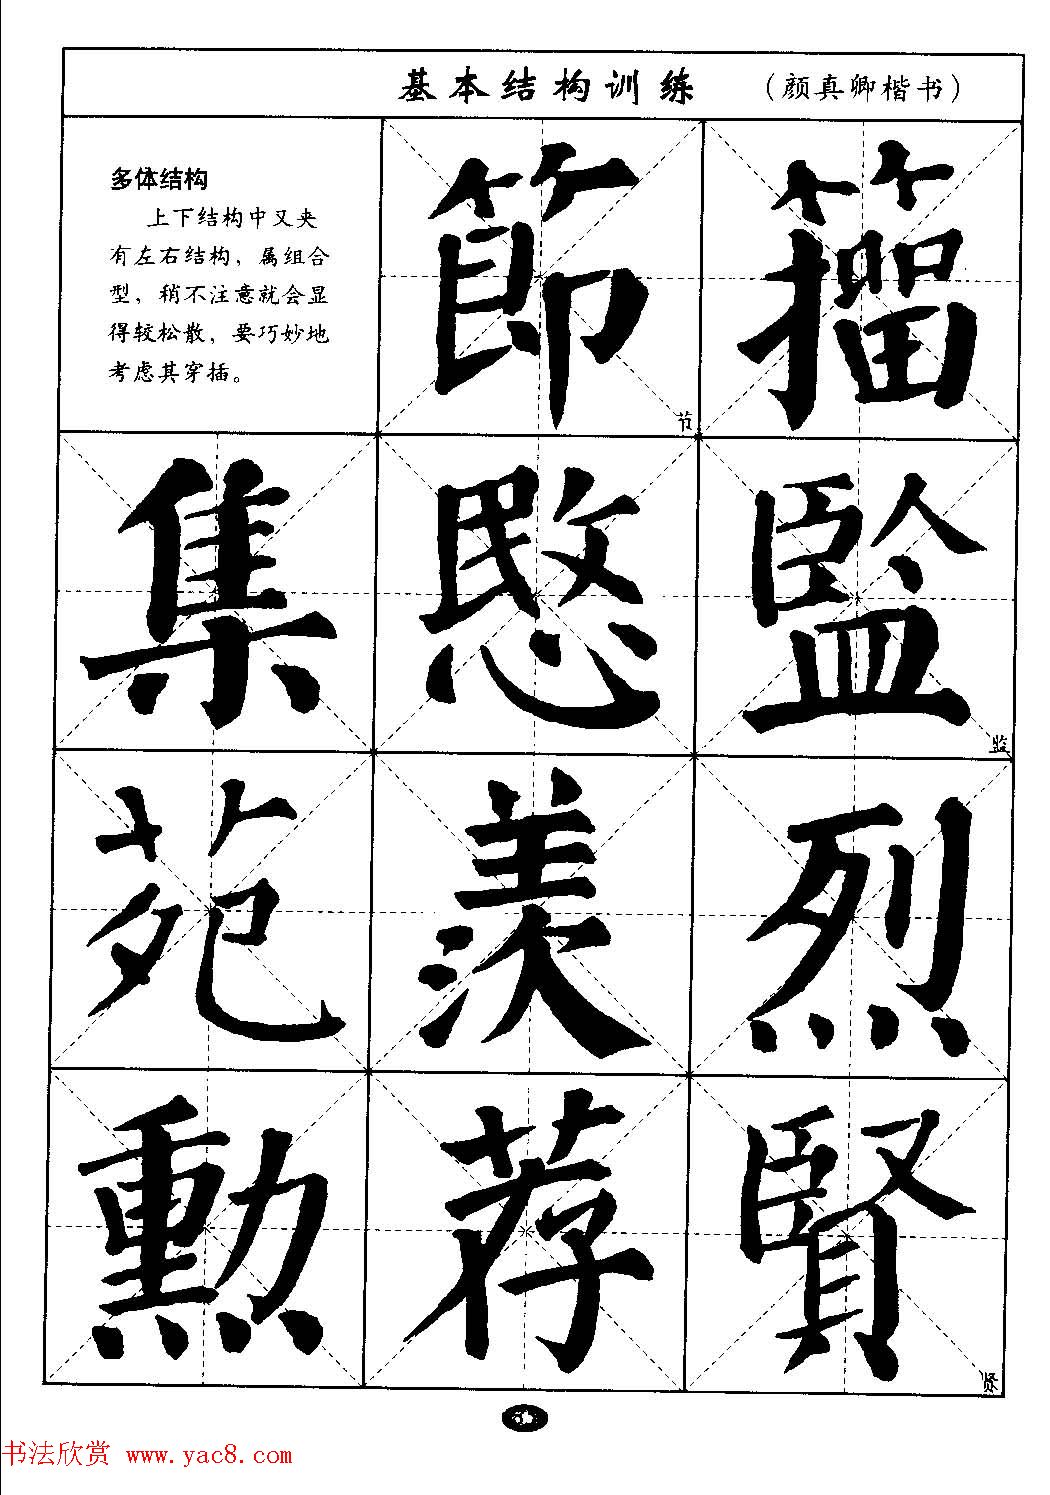 基本结构训练 （颜真卿楷书）
多体结构
上下结构中又夹
有左右结构，属组合
型，稍不注意就会显
得较松散，要巧妙地
考虑其穿插。
節 籀
节
集 愍 監
监
苑 羡 烈
勲 荐 賢
贤
书法欣赏 www.yac8.com